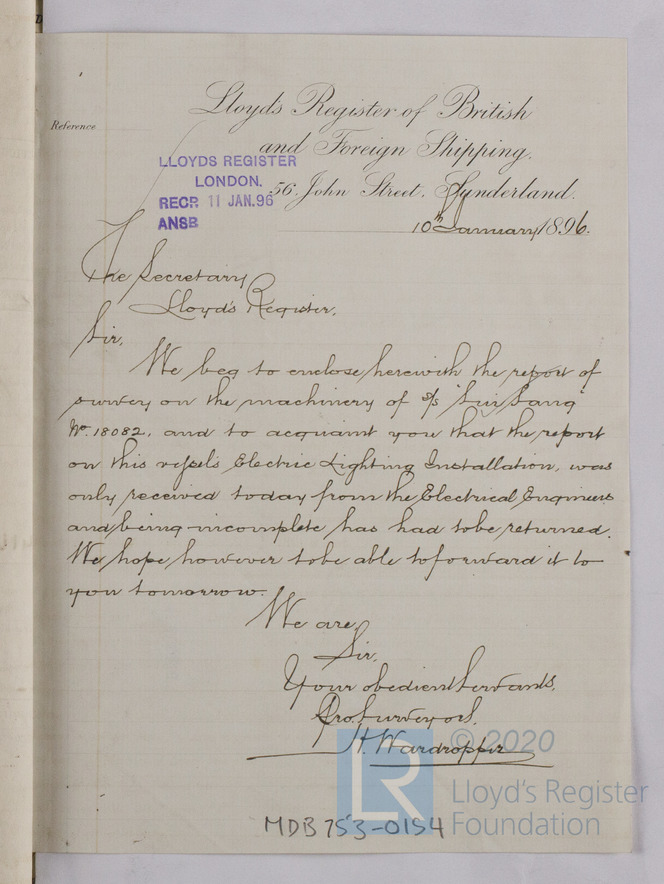 Lloyd's Register of British
and Foreign Shipping.
Reference
LLOYDS REGISTER
LONDON.
RECD 11 JAN.96
ANSD
56, John Street, Sunderland.
10th January 1896.
To
The Secretary
Lloyd's Register.
Sir,
We beg to enclose herewith the report of
survey on the machinery of s/s "Sui Sang"
No. 18082, and to acquaint you that the report
on this vessel's Electric Lighting Installation, was
only received today from the Electrical Engineers
and being incomplete has had to be returned.
We hope however to be able to forward it to
you tomorrow.
We are,
Sir,
Your obedient Servants,
Pro. Surveyors.
H. Wardropper
© 2020
Lloyd's Register
Foundation
LR
MDB753-0154